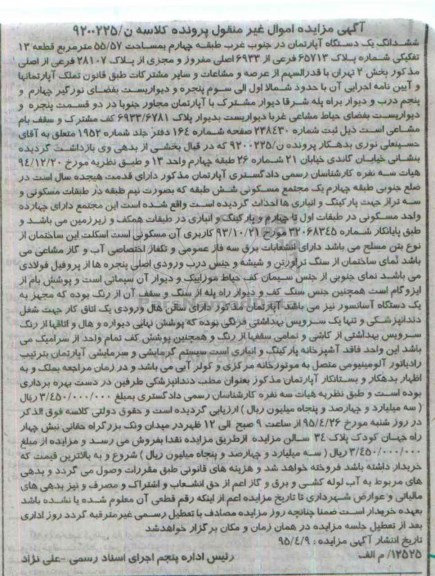 آگهی مزایده اموال غیر منقول پرونده کلاسه ن/۹۲۰۰۲۲۵
ششدانگ یک دستگاه آپارتمان در جنوب غرب طبقه چهارم بمساحت ۵۵/۵۷ مترمربع قطعه ۱۳
تفکیکی شماره پلاک ۶۵۷۱۳ فرعی از ۶۹۳۳ اصلی مفروز و مجزی از پلاک ۲۸۱۰۷ فرعی از اصلی
مذکور بخش ۲ تهران با قدرالسهم از عرصه و مشاعات و سایر مشترکات طبق قانون تملک آپارتمانها
و آیین نامه اجرایی آن با حدود شمالا اول الی سوم پنجره و دیواریست بفضای نورگیر چهارم و
پنجم درب و دیوار براه پله شرقا دیوار مشترک با آپارتمان مجاور جنوبا در دو قسمت پنجره و
دیواریست بفضای حیاط مشاعی غربا دیواریست بدیوار پلاک ۶۹۳۳/۶۷۸۱ کف مشترک و سقف بام
مشاعی است ذیل ثبت شماره ۲۳۸۴۳۰ صفحه شماره ۱۶۴ دفتر جلد شماره ۱۹۵۲ متعلق به آقای
حسینعلی نوری بدهکار پرونده ن/۹۲۰۰۲۲۵ که در قبال بخشی از بدهی وی بازداشت گردیده
بنشانی خیابان گاندی خیابان ۲۱ شماره ۲۶ طبقه چهارم واحد ۱۳ و طبق نظریه مورخ ۹۴/۱۲/۲۰
هیات سه نفره کارشناسان رسمی دادگستری آپارتمان مذکور دارای قدمت هیجده سال است در
ضلع جنوبی طبقه چهارم یک مجتمع مسکونی شش طبقه که بصورت نیم طبقه در طبقات مسکونی و
سه تراز جهت پارکینگ و انباری ها احداث گردیده است واقع شده است این مجتمع دارای چهارده
واحد مسکونی در طبقات اول تا چهارم و پارکینگ و انباری در طبقات همکف و زیرزمین می باشد و
طبق پایانکار شماره ۳۲۰۶۸۳۴۵ مورخ ۹۳/۱۰/۲۱ کاربری آن مسکونی است اسکلت این ساختمان از
نوع بتن مسلح می باشد دارای انشعابات برق سه فاز عمومی و تکفاز اختصاصی آب و گاز مشاعی می
باشد نمای ساختمان از سنگ تراورتن و شیشه و جنس درب ورودی اصلی پنجره ها از پروفیل فولادی
می باشد نمای جنوبی از جنس سیمان کف حیاط موزاییک و دیوار آن سیمانی است و پوشش بام از
ایزوگام است همچنین جنس سنگ کف و دیوار راه پله از سنگ و سقف آن از رنگ بوده که مجهز به
یک دستگاه آسانسور نیز می باشد آپارتمان مذکور دارای سالن هال ورودی یک اتاق کار جهت شغل
دندانپزشکی و تنها یک سرویس بهداشتی فرنگی بوده که پوشش نهایی دیواره و هال و اتاقها از رنگ
سرویس بهداشتی از کاشی و تمامی سقفها از رنگ و همچنین پوشش کف تمام واحد از سرامیک می
باشد این واحد فاقد آشپزخانه پارکینگ و انباری است سیستم گرمایشی و سرمایشی آپارتمان بترتیب
رادیاتور آلومینیومی متصل به موتورخانه مرکزی و کولر آبی می باشد و در زمان مراجعه بملک و به
اظهار بدهکار و بستانکار آپارتمان مذکور بعنوان مطب دندانپزشکی طرفین در دست بهره برداری
بوده است و طبق نظریه هیات سه نفره کارشناسان رسمی دادگستری بمبلغ ۳/۴۵۰/۰۰۰/۰۰۰ ریال
( سه میلیارد و چهارصد و پنجاه میلیون ریال ) ارزیابی گردیده است و حقوق دولتی کلاسه فوق الذکر
در روز شنبه مورخ ۹۵/۴/۲۶ از ساعت ۹ صبح الی ۱۲ ظهر در میدان ونک بزرگراه حقانی نبش چهار
راه جهان کودک پلاک ۳۴ سالن مزایده ازطریق مزایده نقدا بفروش می رسد و مزایده از مبلغ
۳/۴۵۰/۰۰۰/۰۰۰ ریال ( سه میلیارد و چهارصد و پنجاه میلیون ریال ) شروع و به بالاترین قیمت که
خریدار داشته باشد فروخته خواهد شد و هزینه های قانونی طبق مقررات وصول می گردد و بدهی
های مربوط به آب لوله کشی و برق و گاز اعم از حق انشعاب و اشتراک و مصرف و نیز بدهی های
مالیاتی و عوارض شهرداری تا تاریخ مزایده اعم از اینکه رقم قطعی آن معلوم شده یا نشده باشد
بعهده خریدار است ضمنا چنانچه روز مزایده مصادف با تعطیل رسمی غیرمترقبه گردد روز اداری
بعد از تعطیل جلسه مزایده در همان زمان و مکان برگزار خواهدشد
تاریخ انتشار آگهی مزایده : ۹۵/۴/۹
۱۲۵۲۵/ م الف رئیس اداره پنجم اجرای اسناد رسمی -علی نژاد